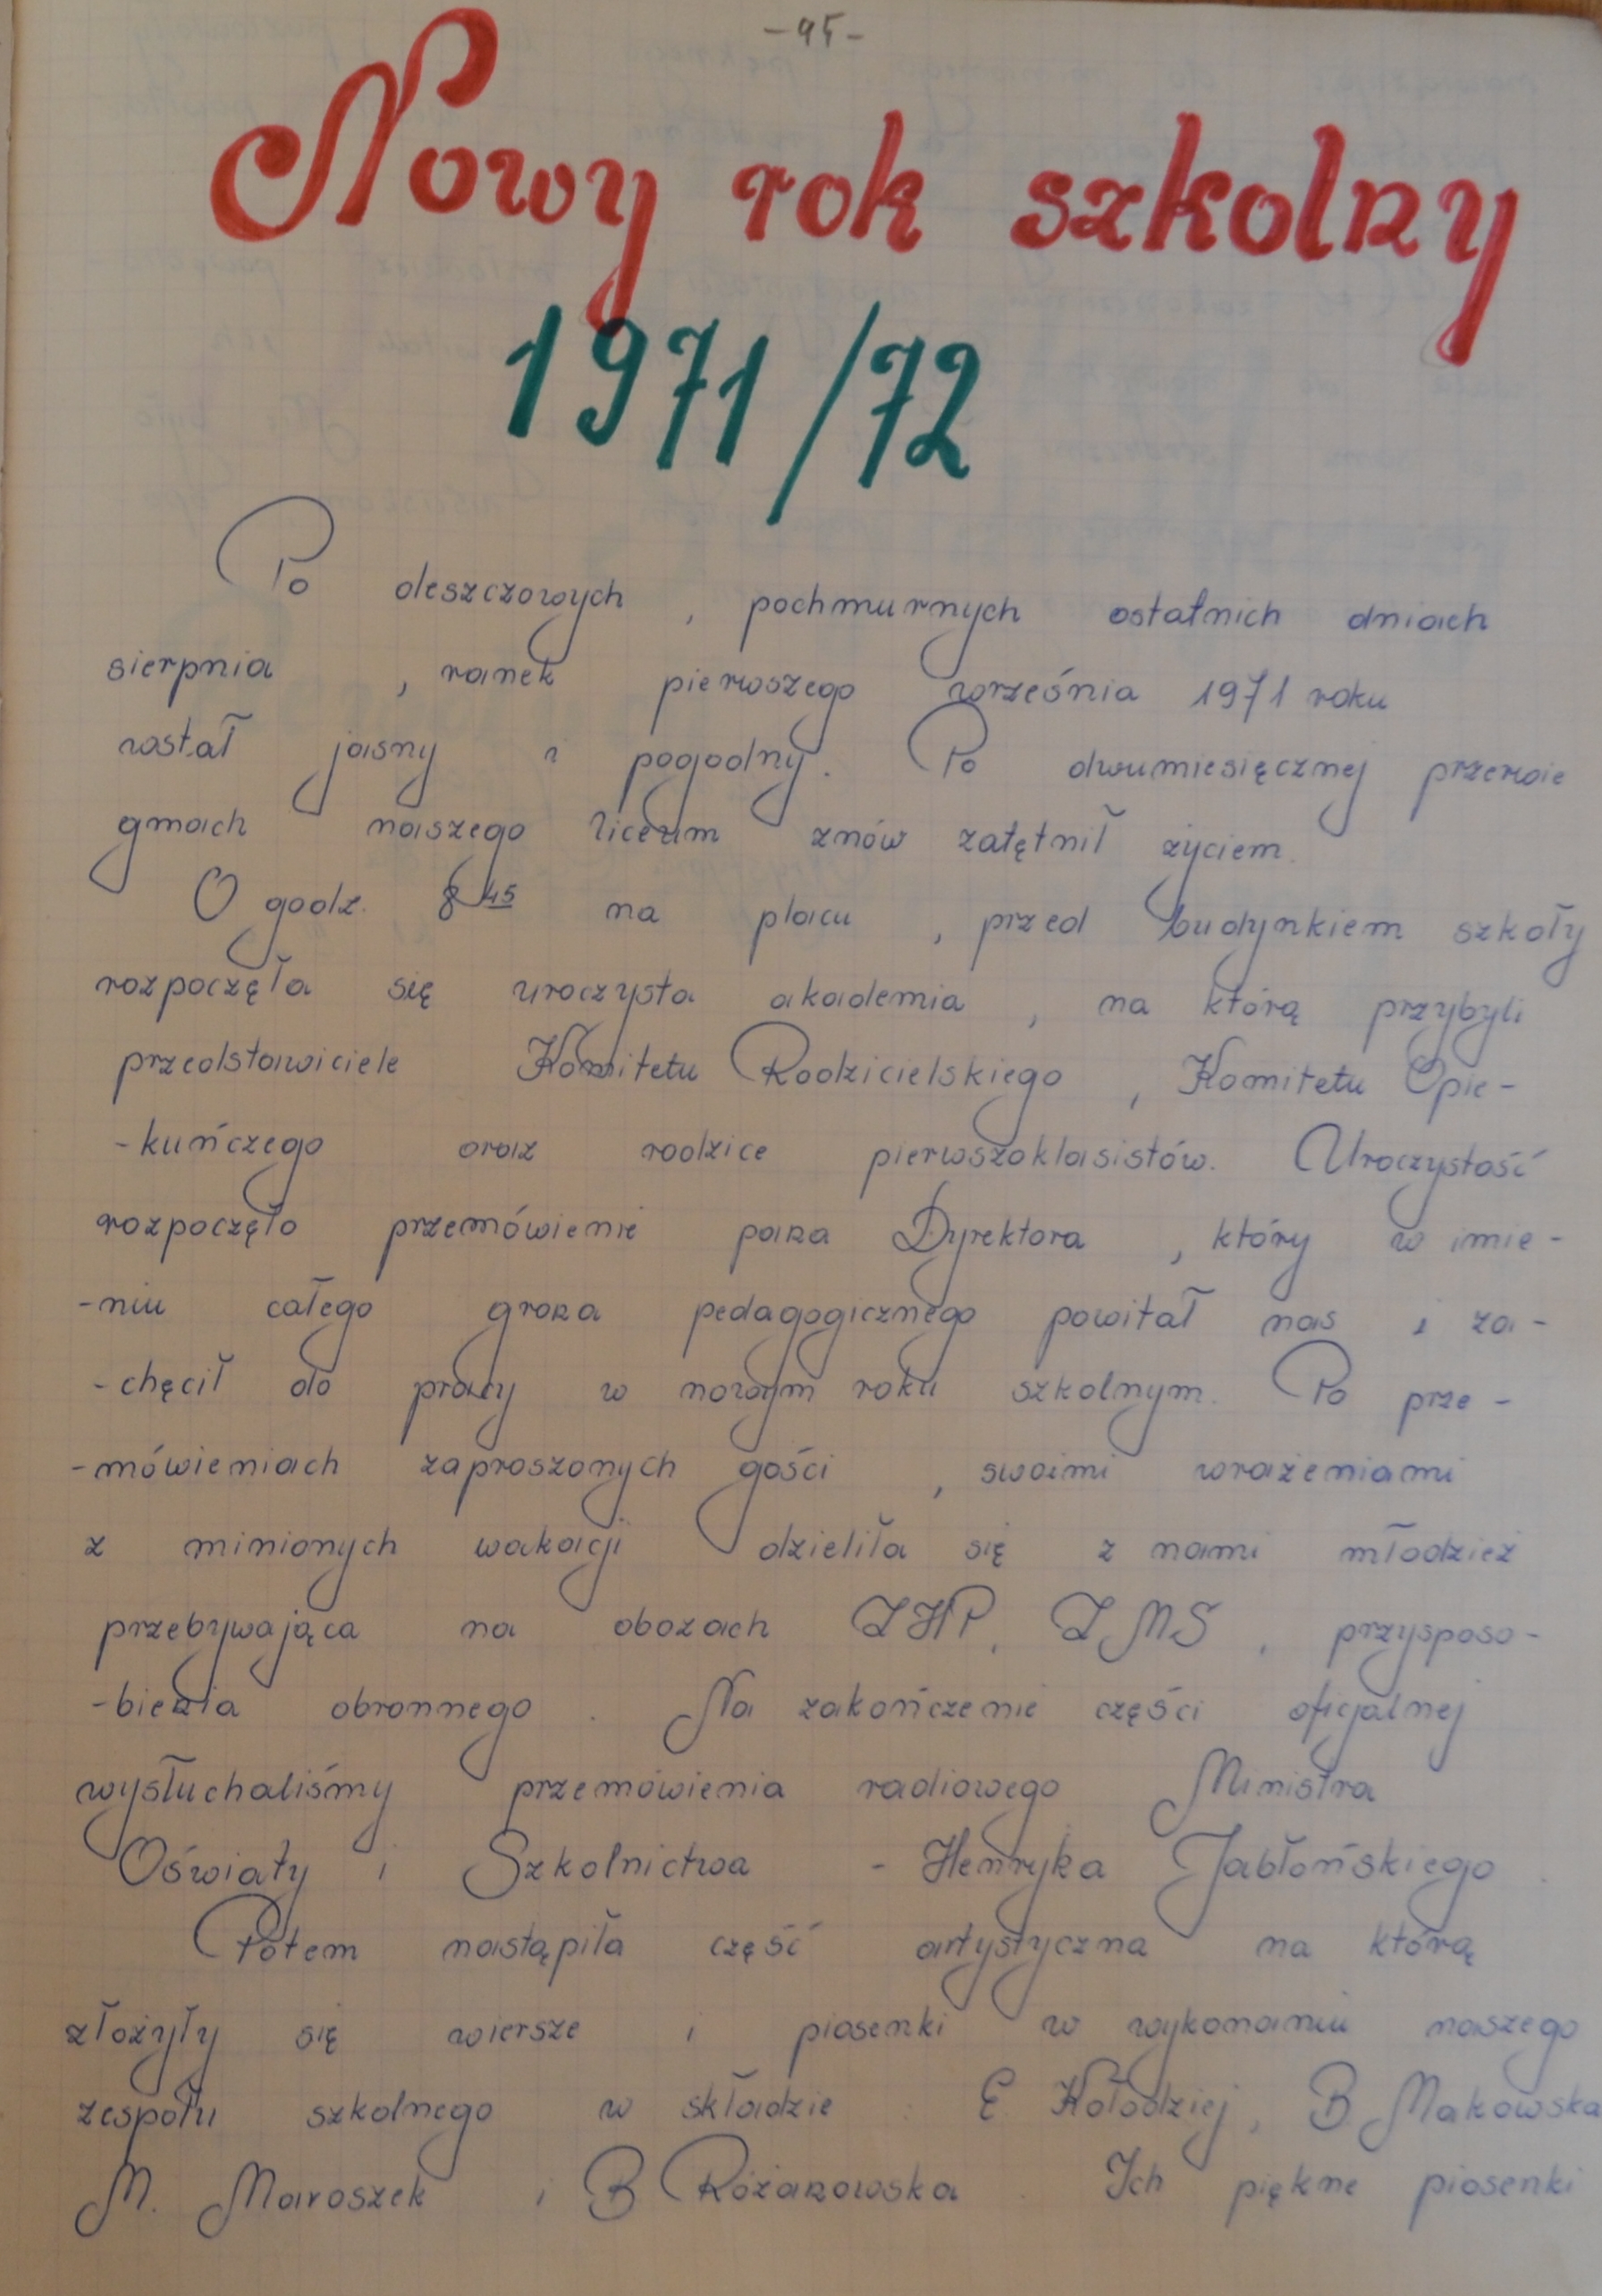 -95-
Nowy rok szkolny
1971/72
Po deszczowych, pochmurnych ostatnich dniach
sierpnia, ranek pierwszego września 1971 roku
wstał jasny i pogodny. Po dwumiesięcznej przerwie
gmach naszego liceum znów zatętnił życiem.
O godz. 8 45 na placu, przed budynkiem szkoły
rozpoczęła się uroczysta akademia, na którą przybyli
przedstawiciele Komitetu Rodzicielskiego, Komitetu Opie-
-kuńczego oraz rodzice pierwszoklasistów. Uroczystość
rozpoczęło przemówienie pana Dyrektora, który w imie-
-niu całego grona pedagogicznego powitał nas i za-
-chęcił do pracy w nowym roku szkolnym. Po prze-
-mówieniach zaproszonych gości, swoimi wrażeniami
z minionych wakacji dzieliła się z nami młodzież
przebywająca na obozach ZHP, ZMS, przysposo-
-bienia obronnego. Na zakończenie części oficjalnej
wysłuchaliśmy przemówienia radiowego Ministra
Oświaty i Szkolnictwa - Henryka Jabłońskiego.
Potem nastąpiła część artystyczna na którą
złożyły się wiersze i piosenki w wykonaniu naszego
zespołu szkolnego w składzie: E. Kołodziej, B. Makowska
M. Maroszek, i B. Różanowska. Ich piękne piosenki